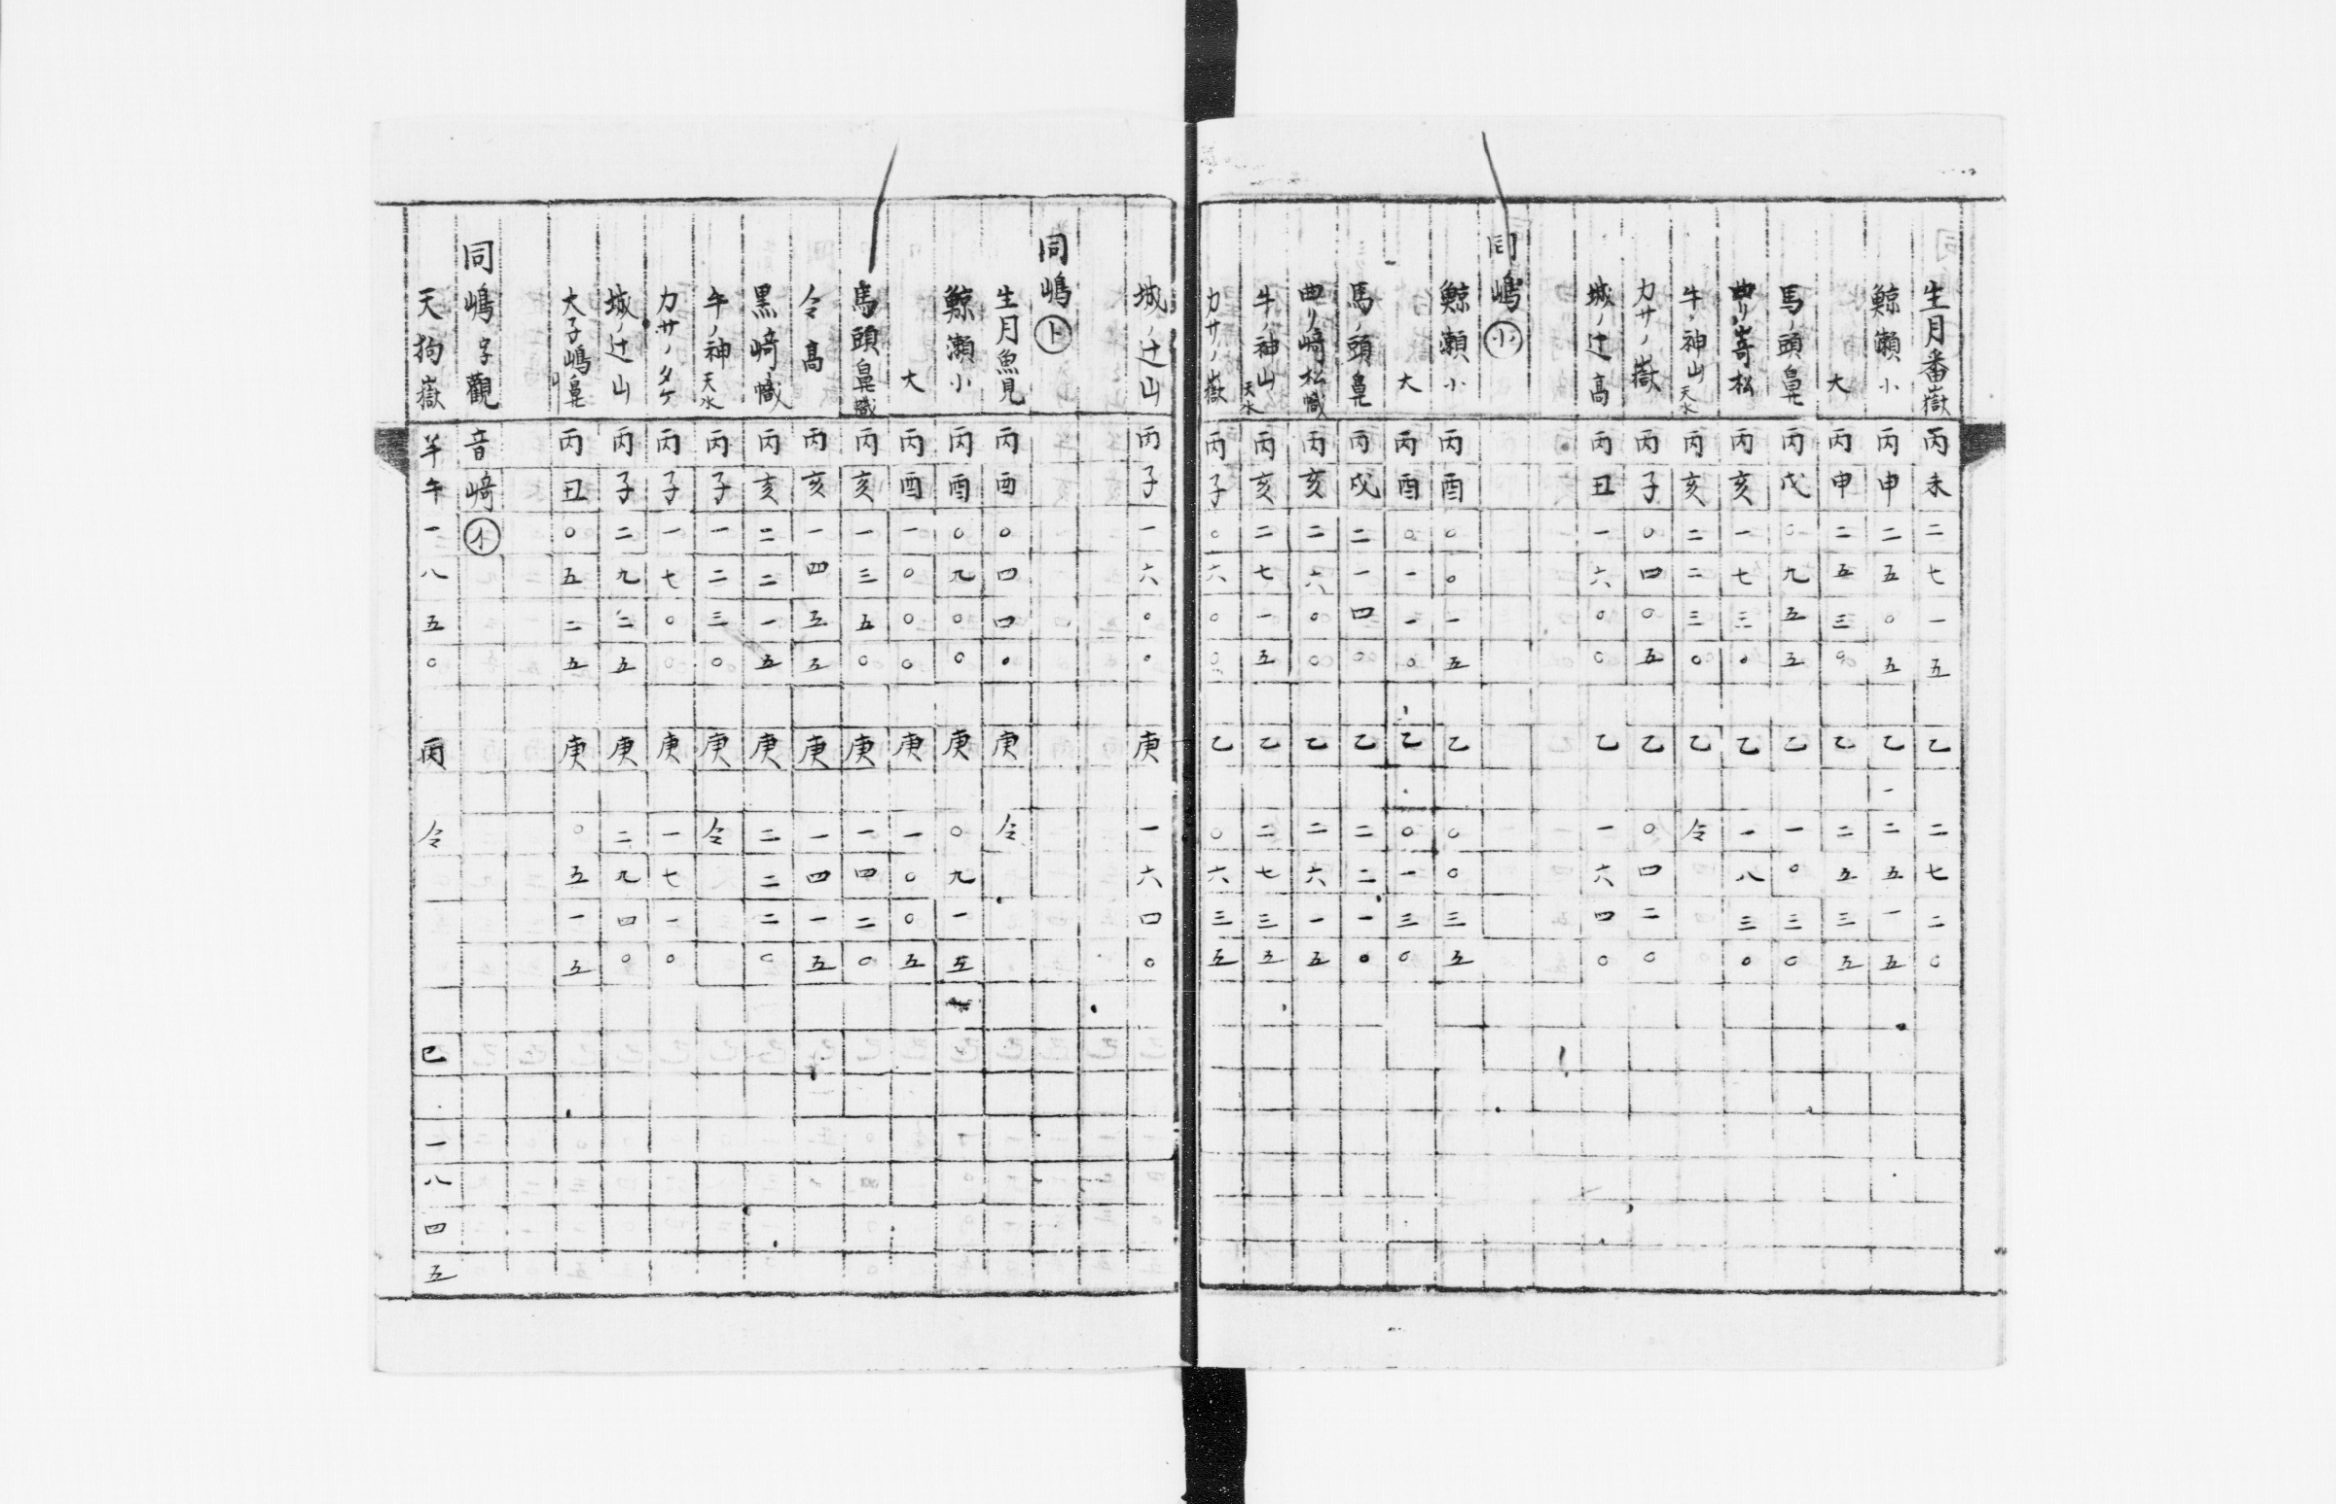 生月番嶽 丙 未 二 七 一 五 乙 二 七 二 〇
鯨瀬小 丙 申 二 五 〇 五 乙 二 五 一 五
大 丙 申 二 五 三 〇 乙 二 五 三 五
馬ノ頭鼻 丙 戌 〇 九 五 五 乙 一 〇 三 〇
曲リ嵜松 丙 亥 一 七 三 〇 乙 一 八 三 〇
牛ノ神山天水 丙 亥 二 二 三 〇 乙 仝
カサノ嶽 丙 子 〇 四 〇 五 乙 〇 四 二 〇
城ノ辻高 丙 丑 一 六 〇 〇 乙 一 六 四 〇
同嶋 小
鯨瀬小 丙 酉 〇 〇 一 五 乙 〇 〇 三 五
大 丙 酉 〇 一 一 〇 乙 〇 一 三 〇
馬ノ頭鼻 丙 戌 二 一 四 〇 乙 二 二 一 〇
曲リ﨑松幟 丙 亥 二 六 〇 〇 乙 二 六 一 五
牛ノ神山天水 丙 亥 二 七 一 五 乙 二 七 三 五
カサノ嶽 丙 子 〇 六 〇 〇 乙 〇 六 三 五
城ノ辻山 丙 子 一 六 〇 〇 庚 一 六 四 〇
同嶋 卜
生月魚見 丙 酉 〇 四 四 〇 庚 仝
鯨瀬小 丙 酉 〇 九 〇 〇 庚 〇 九 一 五
大 丙 酉 一 〇 〇 〇 庚 一 〇 〇 五
馬頭鼻幟 丙 亥 一 三 五 〇 庚 一 四 二 〇
仝高 丙 亥 一 四 五 五 庚 一 四 一 五
黒﨑幟 丙 亥 二 二 一 五 庚 二 二 二 〇
牛ノ神天水 丙 子 一 二 三 〇 庚 仝
カサノタケ 丙 子 一 七 〇 〇 庚 一 七 一 〇
城ノ辻山 丙 子 二 九 二 五 庚 二 九 四 〇
大子嶋鼻 丙 丑 〇 五 二 五 庚 〇 五 一 五
同嶋字觀音﨑 小
天狗嶽 羊 午 一 八 五 〇 丙 仝 巳 一 八 四 五